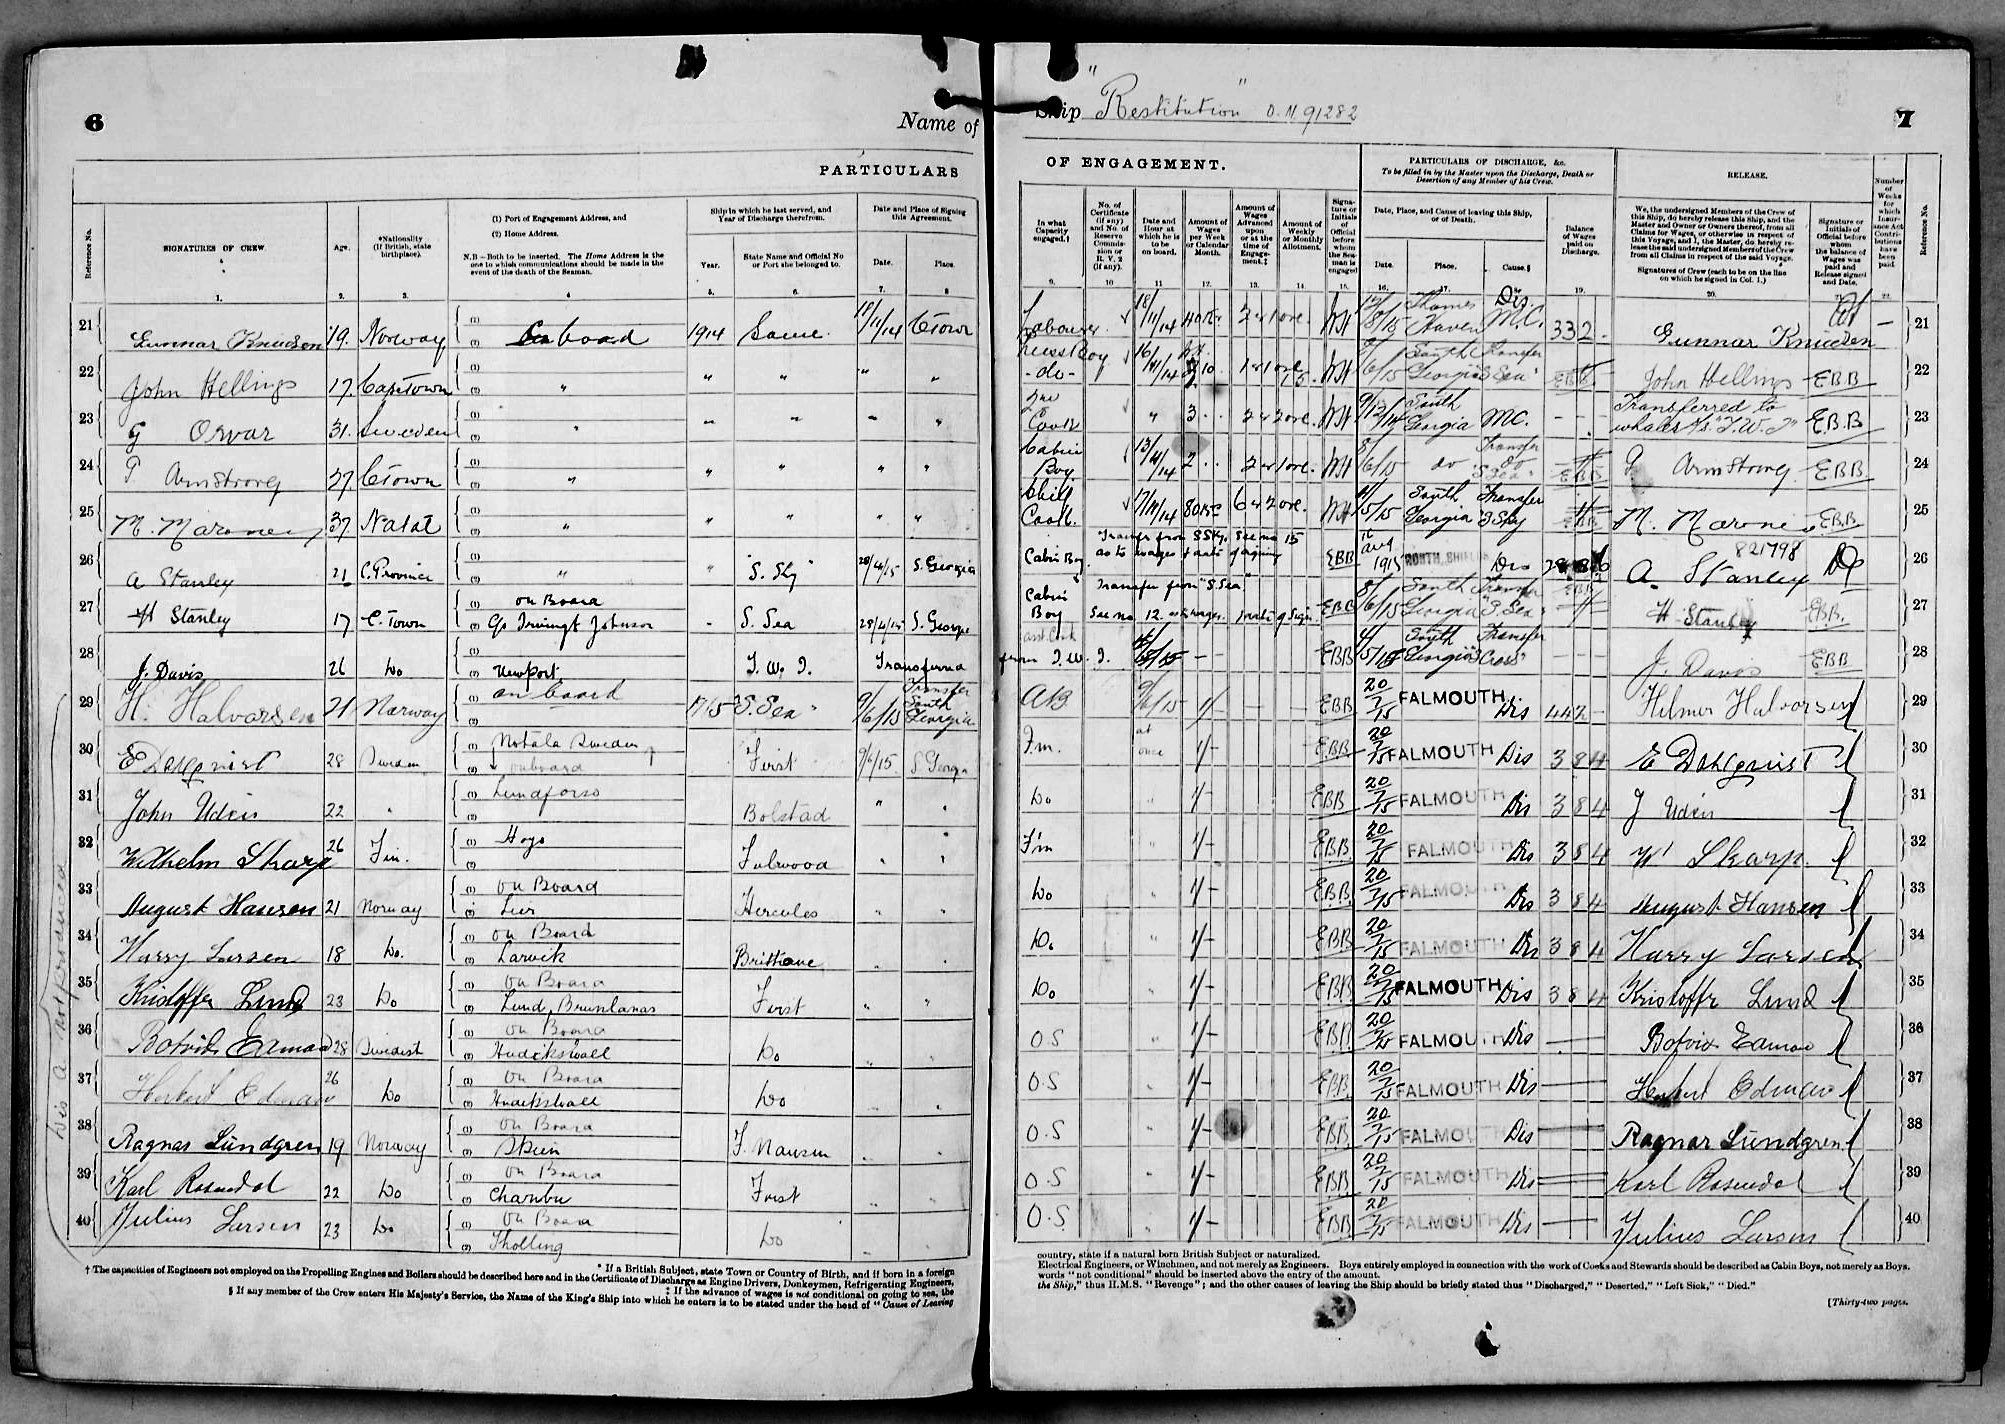 6
Name of
PARTICULARS
Reference No.
SIGNATURES OF CREW.
Age.
*Nationality (If British, state birthplace).
(1) Port of Engagement Address, and
(2) Home Address.
N.B—Both to be inserted. The Home Address is the one to which communications should be made in the event of the death of the Seaman.
Ship in which he last served, and Year of Discharge therefrom.
Year.
State Name and Official No or Port she belonged to.
Date and Place of Signing this Agreement.
Date.
Place.
1. 2. 3. 4 5. 6. 7. 8
21 Gunnar Knudsen 19. Norway (1) (2) On board 1914 Same 11/14 CTown
22 John Hellings 17. Capetown (1) (2) " " " " "
23 G Orvar 31. Sweden (1) (2) " " " " "
24 Armstrong 27. CTown (1) (2) " " " " "
25 M. Maroney 37 Natal (1) (2) " " " " "
26 A Stanley 21 C. Province (1) (2) " " S. Sky 28/4/15 S. Georgia
27 H Stanley 17 C. Town (1) on Board (2) C/o Irving & Johnson - S. Sea 28/4/15 S. George
28 J. Davis 26 Do (1) (2) Newport T. W. I. Transferred
29 H. Halvorsen 21 Norway (1) on board (2) 1915 "S. Sea" 9/6/15 Transfer South Georgia
30 E Dahlqvist 28 Sweden (1) Motala Sweden (2) onboard First 9/6/15 S Georgia
31 John Uden 22 " (1) Lundforss (2) Bolstad " "
32 Wilhelm Skarp 26 Fin. (1) Hogo (2) Fulwood " "
33 August Hansen 21 Norway (1) on Board (2) Lier Hercules " "
34 Harry Larsen 18 Do. (1) on Board (2) Larvik Brittanic " "
35 Kristoffr Lund 23 Do (1) on Board (2) Lund, Brunlanas First " "
36 Botvid 28 Swedish (1) on Board (2) Hudickswall Do " "
37 Herbert 26 Do (1) on Board (2) Hudickswall Do " "
38 Ragnar Lundgren 19 Norway (1) on Board (2) Skien F. Nansen " "
39 Karl Rosendal 22 Do (1) on Board (2) First " "
40 Julius Larsen 23 Do (1) on Board (2) Do " "
Dis A not produced
* If a British Subject, state Town or Country of Birth, and if born in a foreign
† The capacities of Engineers not employed on the Propelling Engines and Boilers should be described here and in the Certificate of Discharge as Engine Drivers, Donkeymen, Refrigerating Engineers,
‡ If the advance of wages is not conditional on going to sea, the
§ If any member of the Crew enters His Majesty's Service, the Name of the King's Ship into which he enters is to be stated under the head of "Cause of Leaving
Ship "Restitution" O. N 91282
7
OF ENGAGEMENT.
PARTICULARS OF DISCHARGE, &c.
To be filled in by the Master upon the Discharge, Death or Desertion of any Member of his Crew.
RELEASE.
In what Capacity engaged.†
No. of Certificate (if any) and No. of Reserve Commission or R. V. 2 (if any).
Date and Hour at which he is to be on board.
Amount of Wages per Week or Calendar Month.
Amount of Wages Advanced upon or at the time of Engagement.‡
Amount of Weekly or Monthly Allotment.
Signature or Initials of Official before whom the Seaman is engaged
Date, Place, and Cause of leaving this Ship, or of Death.
Date.
Place.
Cause.§
Balance of Wages paid on Discharge.
We, the undersigned Members of the Crew of this Ship, do hereby release this Ship, and the Master and Owner or Owners thereof, from all Claims for Wages, or otherwise in respect of this Voyage, and I, the Master, do hereby release the said undersigned Members of the Crew from all Claims in respect of the said Voyage.
Signatures of Crew (each to be on the line on which he signed in Col. 1.)
Signature or Initials of Official before whom the balance of Wages was paid and Release signed and Date.
Number of Weeks for which Insurance Act Contributions have been paid.
Reference No.
9. 10 11 12. 13. 14. 15. 16. 17. 19. 20.
Labourer 18/11/14 Thames Haven Dis. M.C. 332 - Gunnar Knudsen - 21
Messboy - do - 16/11/14 6/15 South Georgia Transfer "S Sea" EBB John Hellings EBB 22
Cook " 3 . . 9/12/14 South Georgia M.C. - - Transferred to whaler "T.W.I" E.B.B 23
Cabin Boy 13/11/14 2 . . 6/15 do Transfer do "S Sea" EBB Armstrong EBB 24
Chief Cook. 17/11/14 5/15 South Georgia Transfer S Sky EBB M. Maroney EBB 25
Cabin Boy Transfer from S Sky. See no 15 as to wages & date of signing EBB 16 Aug 1915 NORTH SHIELDS Dis A. Stanley 821798 26
Cabin Boy Transfer from "S. Sea" See no 12 as to wages & date of sign. EBB 8/6/15 South Georgia Transfer "S. Sea" EBB H Stanley EBB. 27
asst. Cook from T. W. I. - EBB South Georgia Transfer "S Cross" - - - J. Davis EBB 28
AB 9/6/15 1/- - - EBB 20/7/15 FALMOUTH Dis 442 - Hilmer Halvorsen 29
Fm. at once 1/- EBB 20/7/15 FALMOUTH Dis 384 E Dahlqvist 30
Do " 1/- EBB 20/7/15 FALMOUTH Dis 384 J Uden 31
Fm " 1/- EBB. 20/7/15 FALMOUTH Dis 384 W Skarp. 32
Do " 1/- EBB. 20/7/15 FALMOUTH Dis 384 August Hansen 33
Do. " 1/- EBB 20/7/15 FALMOUTH Dis 384 Harry Larsen 34
Do " 1/- EBB 20/7/15 FALMOUTH Dis 384 Kristoffr Lund 35
O.S " 1/- EBB. 20/7/15 FALMOUTH Dis — Botvid 36
O.S " 1/- EBB. 20/7/15 FALMOUTH Dis — Herbert 37
O.S " 1/- EBB 20/7/15 FALMOUTH Dis — Ragnar Lundgren 38
O.S " 1/- EBB 20/7/15 FALMOUTH Dis — Karl Rosendal 39
O.S. " 1/- EBB 20/7/15 FALMOUTH Dis — Julius Larsen 40
country, state if a natural born British Subject or naturalized.
Electrical Engineers, or Winchmen, and not merely as Engineers. Boys entirely employed in connection with the work of Cooks and Stewards should be described as Cabin Boys, not merely as Boys.
words "not conditional" should be inserted above the entry of the amount.
the Ship," thus H.M.S. "Revenge"; and the other causes of leaving the Ship should be briefly stated thus "Discharged," "Deserted," "Left Sick," "Died."
[Thirty-two pages.